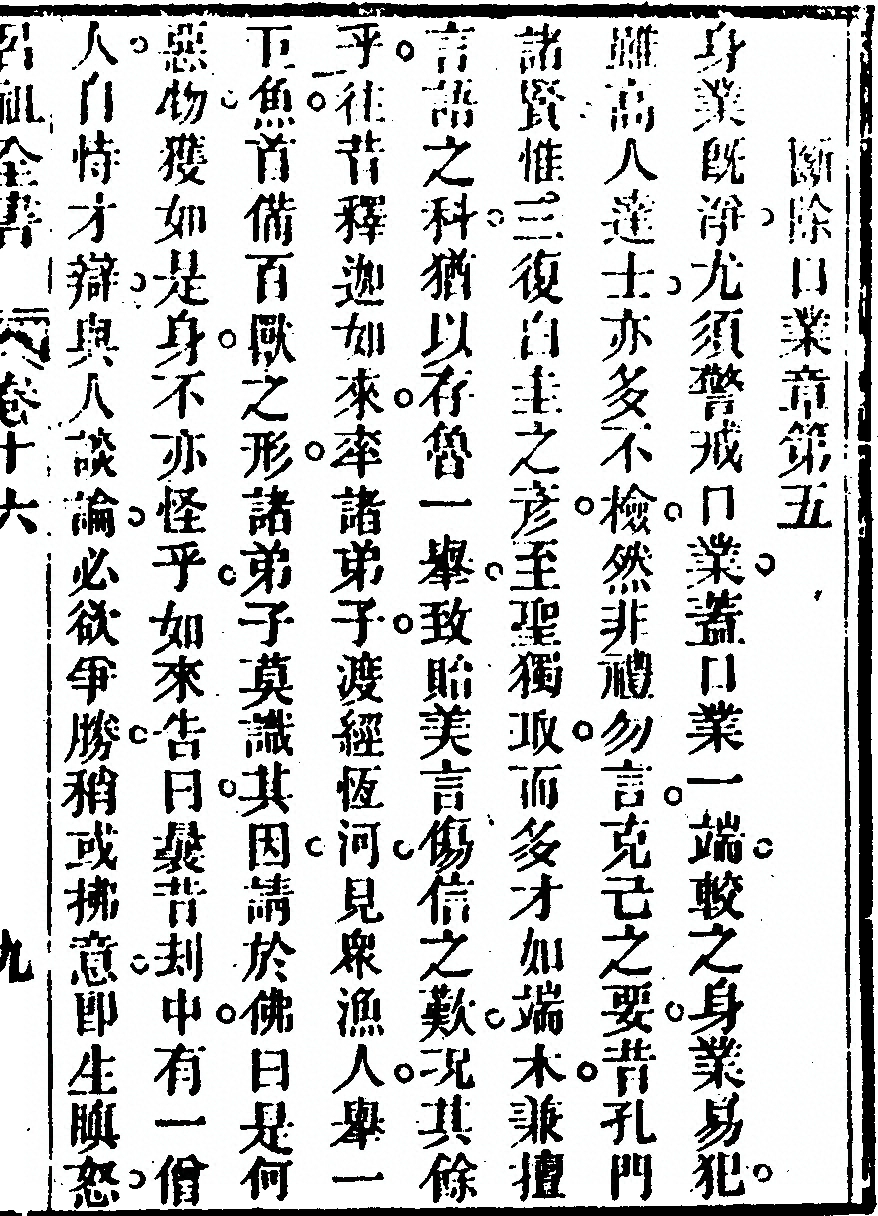 斷除口業章第五
身業旣淨尤須警戒口業蓋口業一端較之身業易犯
雖高人達士亦多不檢然非禮勿言克己之要昔孔門
諸賢惟三復白圭之彥至聖獨取而多才如端木兼擅
言語之科猶以存魯一舉致貽美言傷信之歎况其餘
乎往昔釋迦如來率諸弟子渡經恆河見衆漁人舉一
巨魚首備百獸之形諸弟子莫識其因請於佛曰是何
惡物獲如是身不亦怪乎如來告曰曩昔刦中有一僧
人自恃才辯與人談論必欲爭勝稍或拂意卽生瞋怒
呂祖全書 卷十六 九